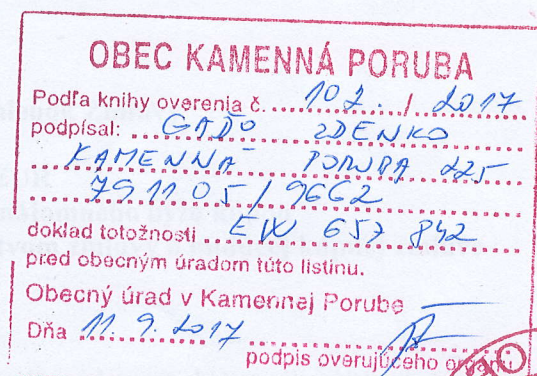 OBEC KAMENNÁ PORUBA
Podľa knihy overenia č. 102. / 2017
podpísal: GAĎO ZDENKO
KAMENNÁ PORUBA 225
791105/9662
doklad totožnosti EW 657 842
pred obecným úradom túto listinu.
Obecný úrad v Kamennej Porube
Dňa 11. 9. 2017
podpis overujúceho orgánu